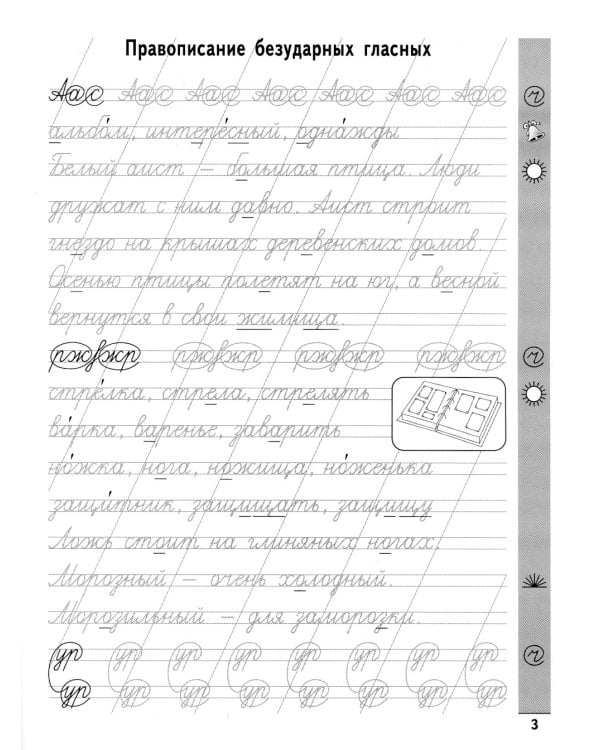 Правописание безударных гласных
Аас Аас Аас Аас Аас Аас Аас
альбо́м, интере́сный, одна́жды
Белый аист – большая птица. Люди
дружат с ним давно. Аист строит
гнездо на крышах деревенских домов.
Осенью птицы полетят на юг, а весной
вернутся в свои жилища.
ржвжр ржвжр ржвжр ржвжр
стре́лка, стрела, стрелять
ва́рка, варенье, заварить
но́жка, нога, ножища, но́женька
защи́тник, защищать, защищу
Ложь стоит на глиняных ногах.
Морозный – очень холодный.
Морозильный – для заморозки.
ур ур ур ур ур ур ур ур
ур ур ур ур ур ур ур ур
3